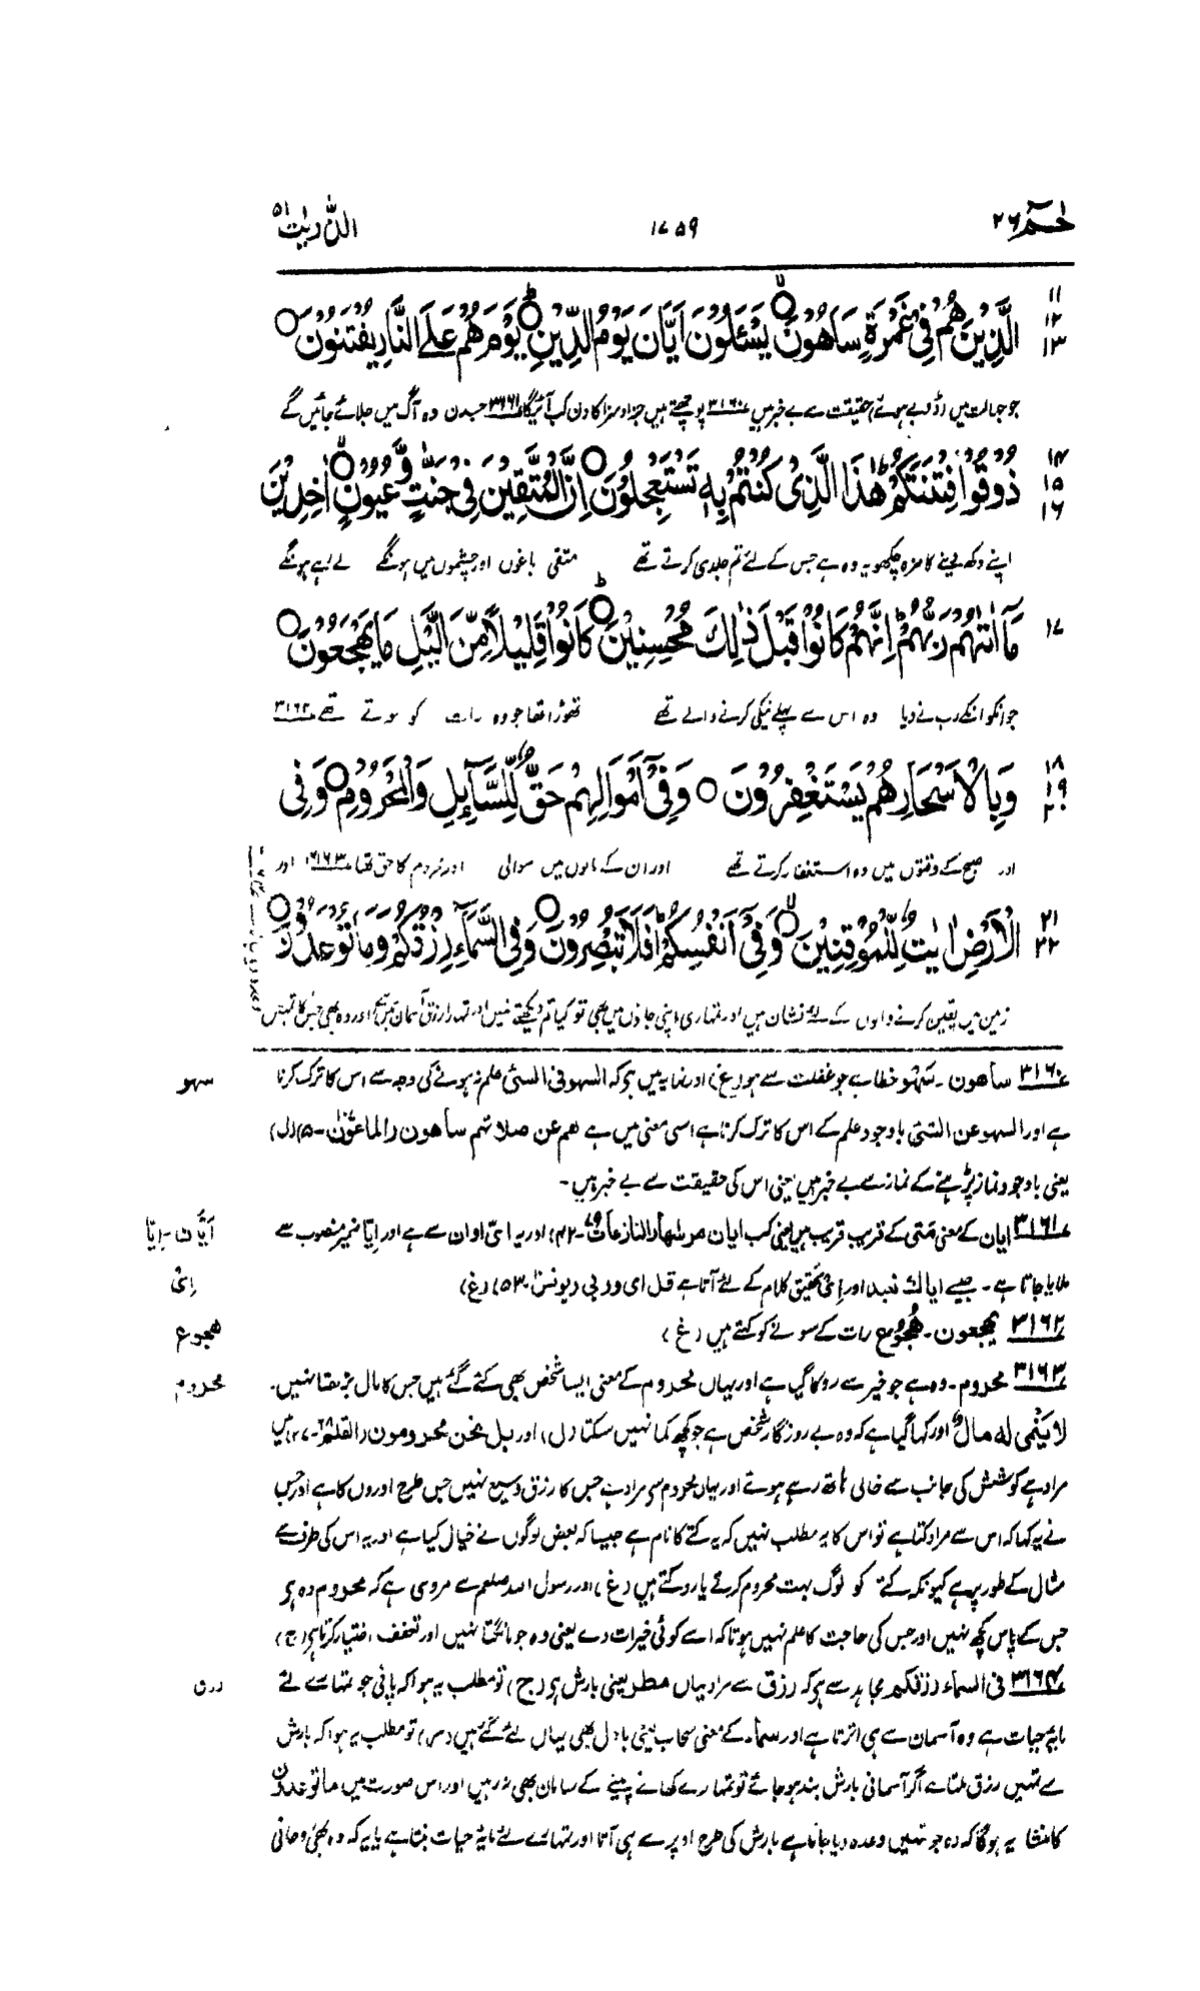 حٰمٓ ۲۶ ۱۷۵۹ الذّٰریٰت ۵۱
۱۱ ۱۲ ۱۳ الَّذِیْنَ هُمْ فِیْ غَمْرَةٍ سَاهُوْنَ ۙ یَسْئَلُوْنَ اَیَّانَ یَوْمُ الدِّیْنِ ؕ یَوْمَ هُمْ عَلَی النَّارِ یُفْتَنُوْنَ
جو جہالت میں (ڈوبے ہوئے) حقیقت سے بے خبر ہیں ۳۱۶۰ پوچھتے ہیں جزا و سزا کا دن کب آئیگا ۳۱۶۱ جس دن وہ آگ میں جلائے جائیں گے
۱۴ ۱۵ ۱۶ ذُوْقُوْا فِتْنَتَكُمْ ؕ هٰذَا الَّذِیْ كُنْتُمْ بِهٖ تَسْتَعْجِلُوْنَ اِنَّ الْمُتَّقِیْنَ فِیْ جَنّٰتٍ وَّ عُیُوْنٍ ۙ اٰخِذِیْنَ
اپنے دکھ دینے کا مزہ چکھو یہ وہ ہے جس کے لئے تم جلدی کرتے تھے متقی باغوں اور چشموں میں ہونگے لے رہے ہونگے
۱۷ مَاۤ اٰتٰىهُمْ رَبُّهُمْ ؕ اِنَّهُمْ كَانُوْا قَبْلَ ذٰلِكَ مُحْسِنِیْنَ ؕ كَانُوْا قَلِیْلًا مِّنَ الَّیْلِ مَا یَهْجَعُوْنَ
جو انکو انکے رب نے دیا وہ اس سے پہلے نیکی کرنے والے تھے تھوڑا تھا جو وہ رات کو سوتے تھے ۳۱۶۲
۱۸ ۱۹ ۲۰ وَ بِالْاَسْحَارِ هُمْ یَسْتَغْفِرُوْنَ وَ فِیْۤ اَمْوَالِهِمْ حَقٌّ لِّلسَّآىِٕلِ وَ الْمَحْرُوْمِ وَ فِی
اور صبح کے وقتوں میں وہ استغفار کرتے تھے اور ان کے مالوں میں سوالی اور محروم کا حق تھا ۳۱۶۳ اور
۲۱ ۲۲ الْاَرْضِ اٰیٰتٌ لِّلْمُوْقِنِیْنَ ۙ وَ فِیْۤ اَنْفُسِكُمْ ؕ اَفَلَا تُبْصِرُوْنَ وَ فِی السَّمَآءِ رِزْقُكُمْ وَ مَا تُوْعَدُوْنَ
زمین میں یقین کرنے والوں کے لئے نشان ہیں اور تمہاری اپنی جانوں میں بھی تو کیا تم دیکھتے نہیں اور تمہارا رزق آسمان میں ہے اور وہ بھی جس کا تمہیں
۳۱۶۰ ساهون ۔ سَهْو خطا ہے جو غفلت سے ہو (غ) اور نہایہ میں ہے کہ السهو فی الشئ علم نہ ہونے کی وجہ سے اس کا ترک کرنا سهو
ہے اور السهو عن الشئ باوجود علم کے اس کا ترک کرنا ہے اسی معنی میں ہے هم عن صلاتهم ساهون (الماعون ۱۰۷-۵) (ل)
یعنی باوجود نماز پڑھنے کے نماز سے بے خبر ہیں یعنی اس کی حقیقت سے بے خبر ہیں ۔
۳۱۶۱ ایان کے معنی متی کے قریب قریب ہیں یعنی کب ایان مرسٰها (النازعات ۷۹-۴۲) اور یہ ای اوان سے ہے اور اِیَّا ضمیر منصوب سے اَیَّان - اِیَّا
ملایا جاتا ہے ۔ جیسے ایاك نعبد اور اِیْ تحقیق کلام کے لئے آتا ہے قل ای و ربی (یونس ۱۰-۵۳) (غ) اِیْ
۳۱۶۲ یهجعون ۔ هُجُوْع رات کے سونے کو کہتے ہیں (غ) هجوع
۳۱۶۳ محروم ۔ وہ ہے جو خیر سے روکا گیا ہے اور یہاں محروم کے معنی ایسا شخص بھی کئے گئے ہیں جس کا مال بڑھتا نہیں ۔ محروم
لا یَنْمِی له مال اور کہا گیا ہے کہ وہ بے روزگار شخص ہے جو کچھ کما نہیں سکتا (ل) اور بل نحن محرومون (القلم ۶۸-۲۷) میں
مراد ہے کوشش کی جانب سے خالی ہاتھ رہے ہوئے اور یہاں محروم سے مراد ہے جس کا رزق وسیع نہیں جس طرح اوروں کا ہے اور جس
نے یہ کہا کہ اس سے مراد کتا ہے تو اس کا یہ مطلب نہیں کہ یہ کتے کا نام ہے جیسا کہ بعض لوگوں نے خیال کیا ہے اور یہ اس کی طرف سے
مثال کے طور پر ہے کیونکہ کتے کو لوگ بہت محروم کرتے یا روکتے ہیں (غ) اور رسول اللہ صلعم سے مروی ہے کہ محروم وہ ہے
جس کے پاس کچھ نہیں اور جس کی حاجت کا علم نہیں ہوتا کہ اسے کوئی خیرات دے یعنی وہ جو مانگتا نہیں اور تعفف اختیار کرتا ہے (ج)
۳۱۶۴ فی السماء رزقكم مجاہد سے ہے کہ رزق سے مراد یہاں مطر یعنی بارش ہے (ج) تو مطلب یہ ہوا کہ پانی جو تمہارے لئے رزق
مایہ حیات ہے وہ آسمان سے ہی اترتا ہے اور سماء کے معنی سحاب یعنی بادل بھی یہاں لئے گئے ہیں (س) تو مطلب یہ ہوا کہ بارش
سے تمہیں رزق ملتا ہے اگر آسمانی بارش بند ہو جائے تو تمہارے کھانے پینے کے سامان بھی نہ رہیں اور اس صورت میں ما توعدون
کا منشا یہ ہوگا کہ وہ جو تمہیں وعدہ دیا جاتا ہے بارش کی طرح اوپر سے ہی آتا اور تمہارے لئے مایۂ حیات بنتا ہے یا یہ کہ وہ بھی روحانی